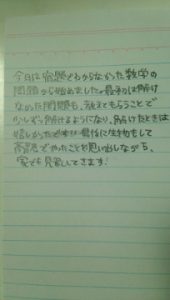 今日は宿題でわからなかった数学の
問題から始めました。最初は解け
なかった問題も、教えてもらうことで
少しずつ解けるようになり、解けたときは
嬉しかったです。最後に生物をして
講習でやったことを思い出しながら、
家でも見直してきます!